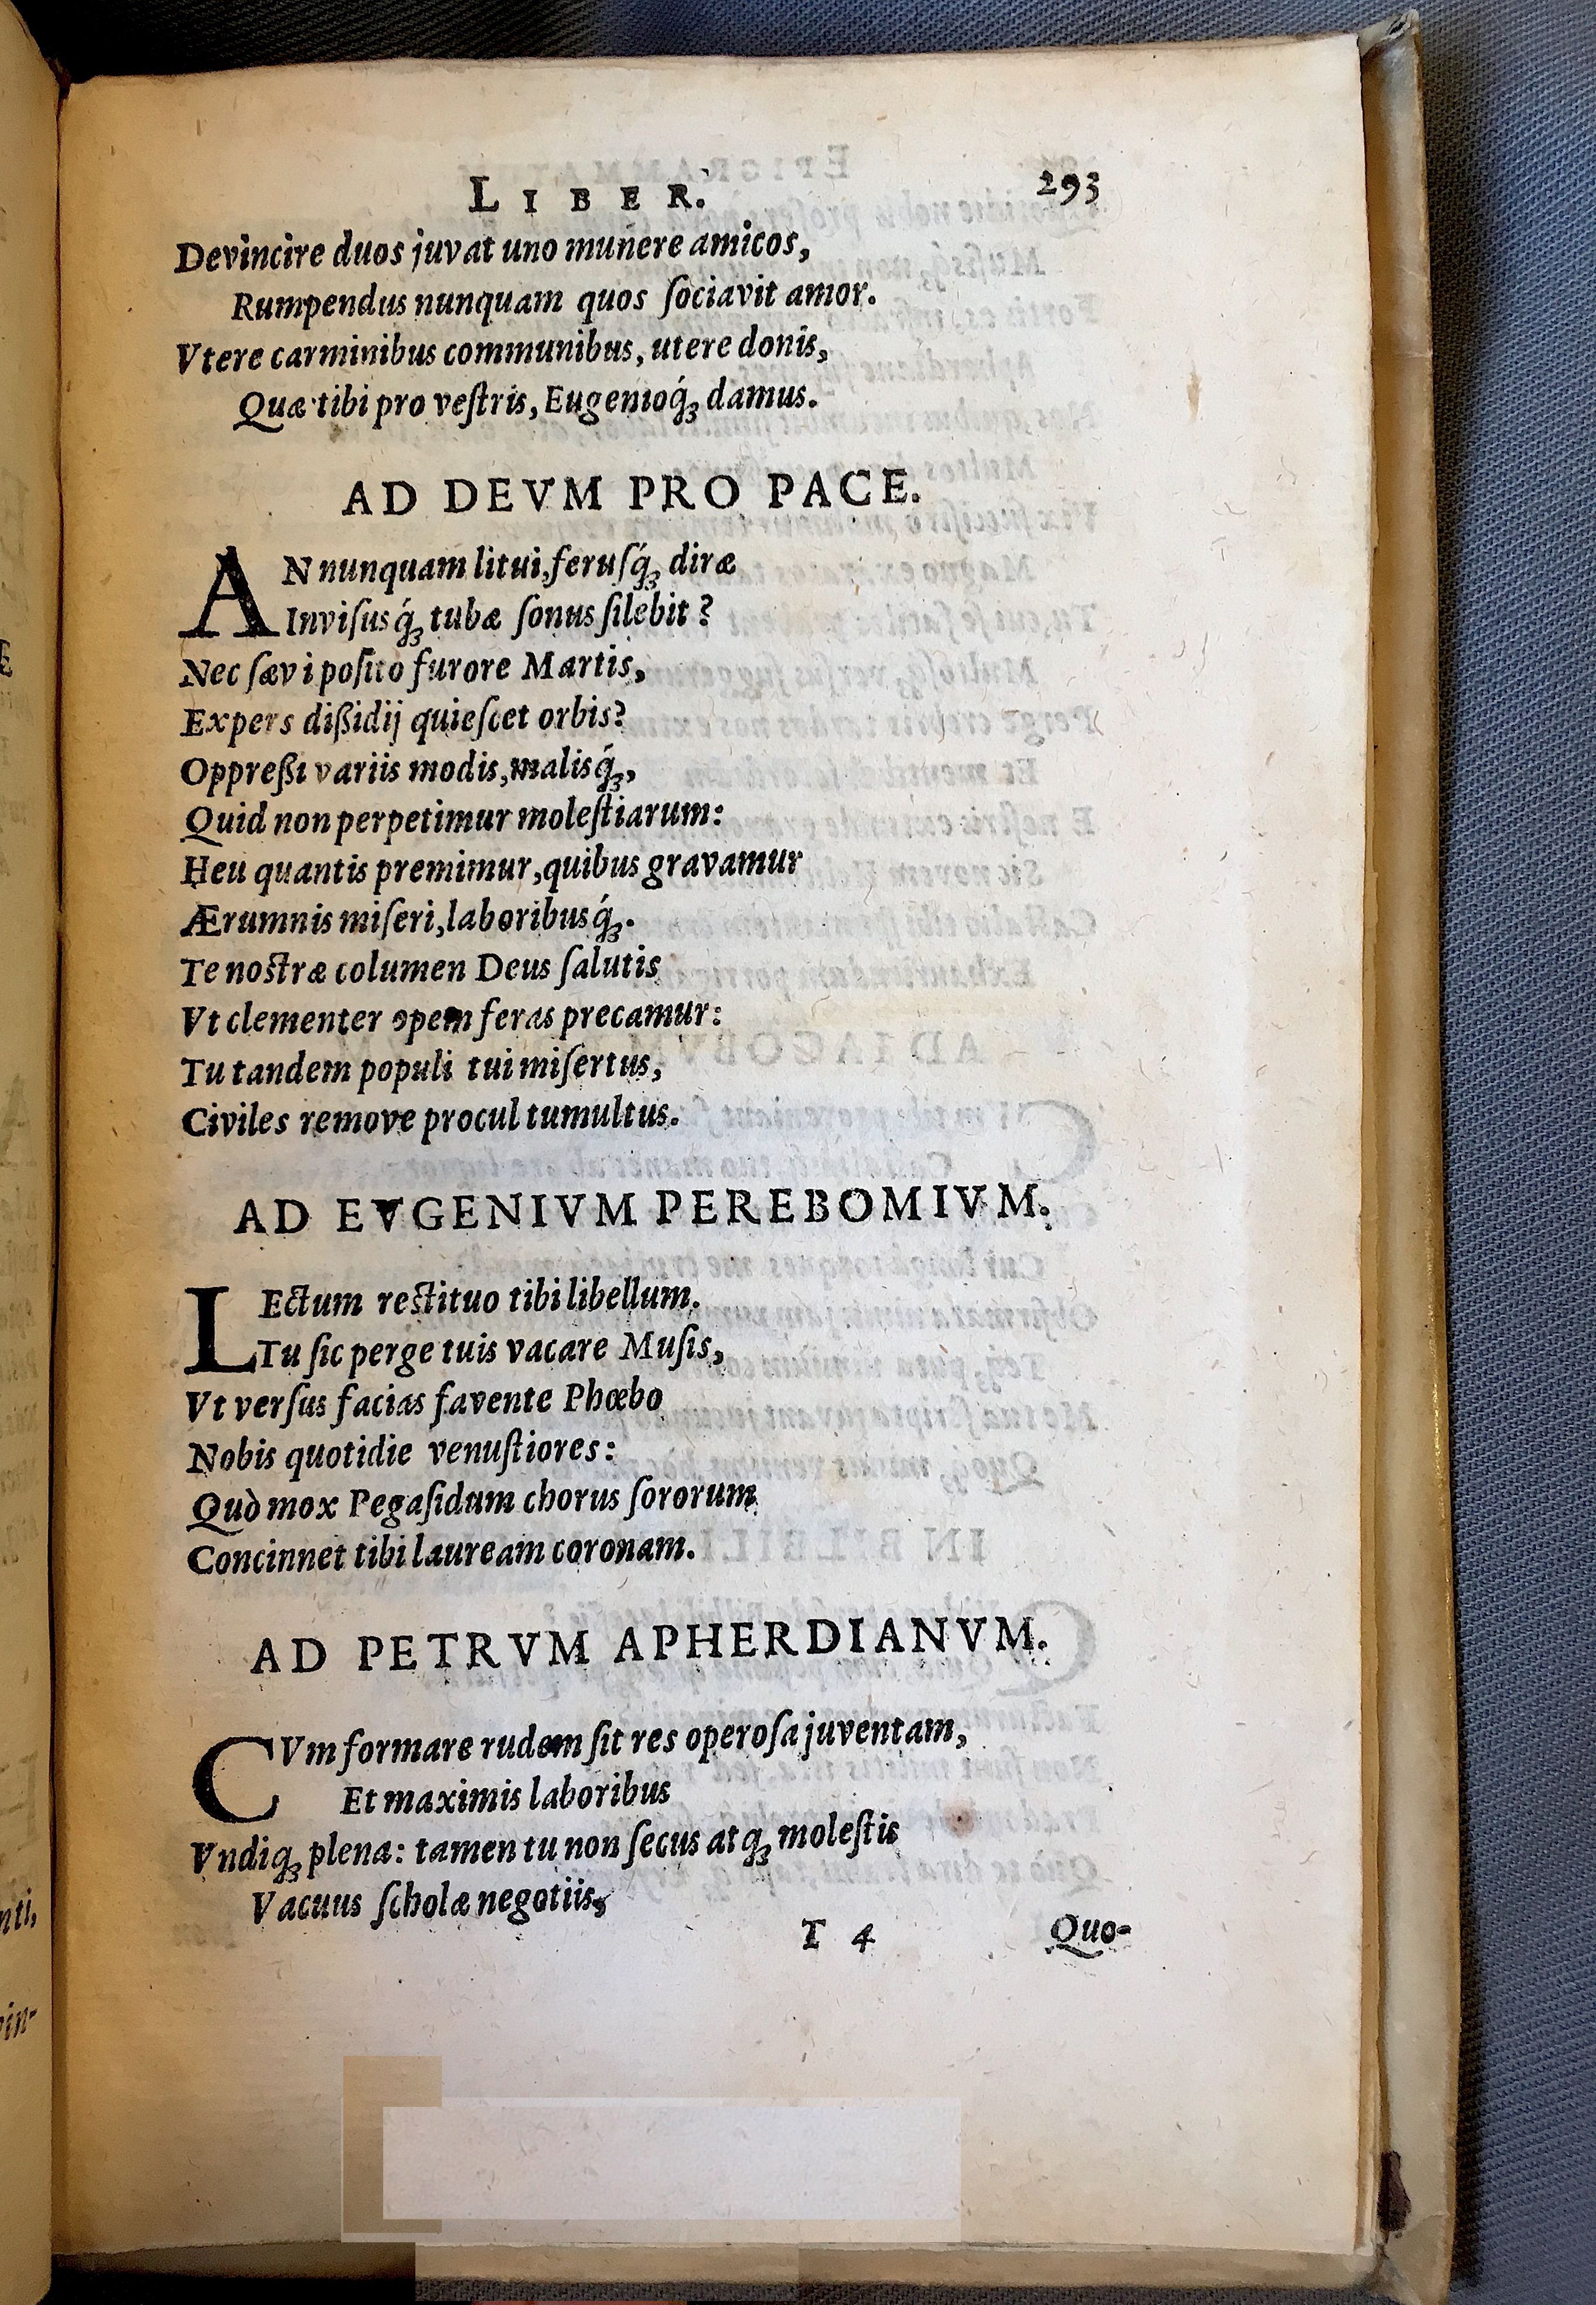 LIBER. 293
Devincire duos juvat uno munere amicos,
Rumpendus nunquam quos ſociavit amor.
Vtere carminibus communibus, utere donis,
Quæ tibi pro veſtris, Eugenioq́ꝫ damus.
AD DEVM PRO PACE.
AN nunquam litui, feruſq́ꝫ diræ
Inviſusq́ꝫ tubæ ſonus ſilebit?
Nec ſævi poſito furore Martis,
Expers dißidij quieſcet orbis?
Oppreßi variis modis, malisq́ꝫ,
Quid non perpetimur moleſtiarum:
Heu quantis premimur, quibus gravamur
Ærumnis miſeri, laboribusq́ꝫ.
Te nostræ columen Deus ſalutis
Vt clementer opem feras precamur:
Tu tandem populi tui miſertus,
Civiles remove procul tumultus.
AD EVGENIVM PEREBOMIVM.
LEctum restituo tibi libellum.
Tu ſic perge tuis vacare Muſis,
Vt verſus facias favente Phœbo
Nobis quotidie venuſtiores:
Quò mox Pegaſidum chorus ſororum
Concinnet tibi lauream coronam.
AD PETRVM APHERDIANVM.
CVm formare rudem ſit res operoſa juventam,
Et maximis laboribus
Vndiqꝫ plena: tamen tu non ſecus atqꝫ moleſtis
Vacuus ſcholæ negotiis,
T 4 Quo-
nti,
in-